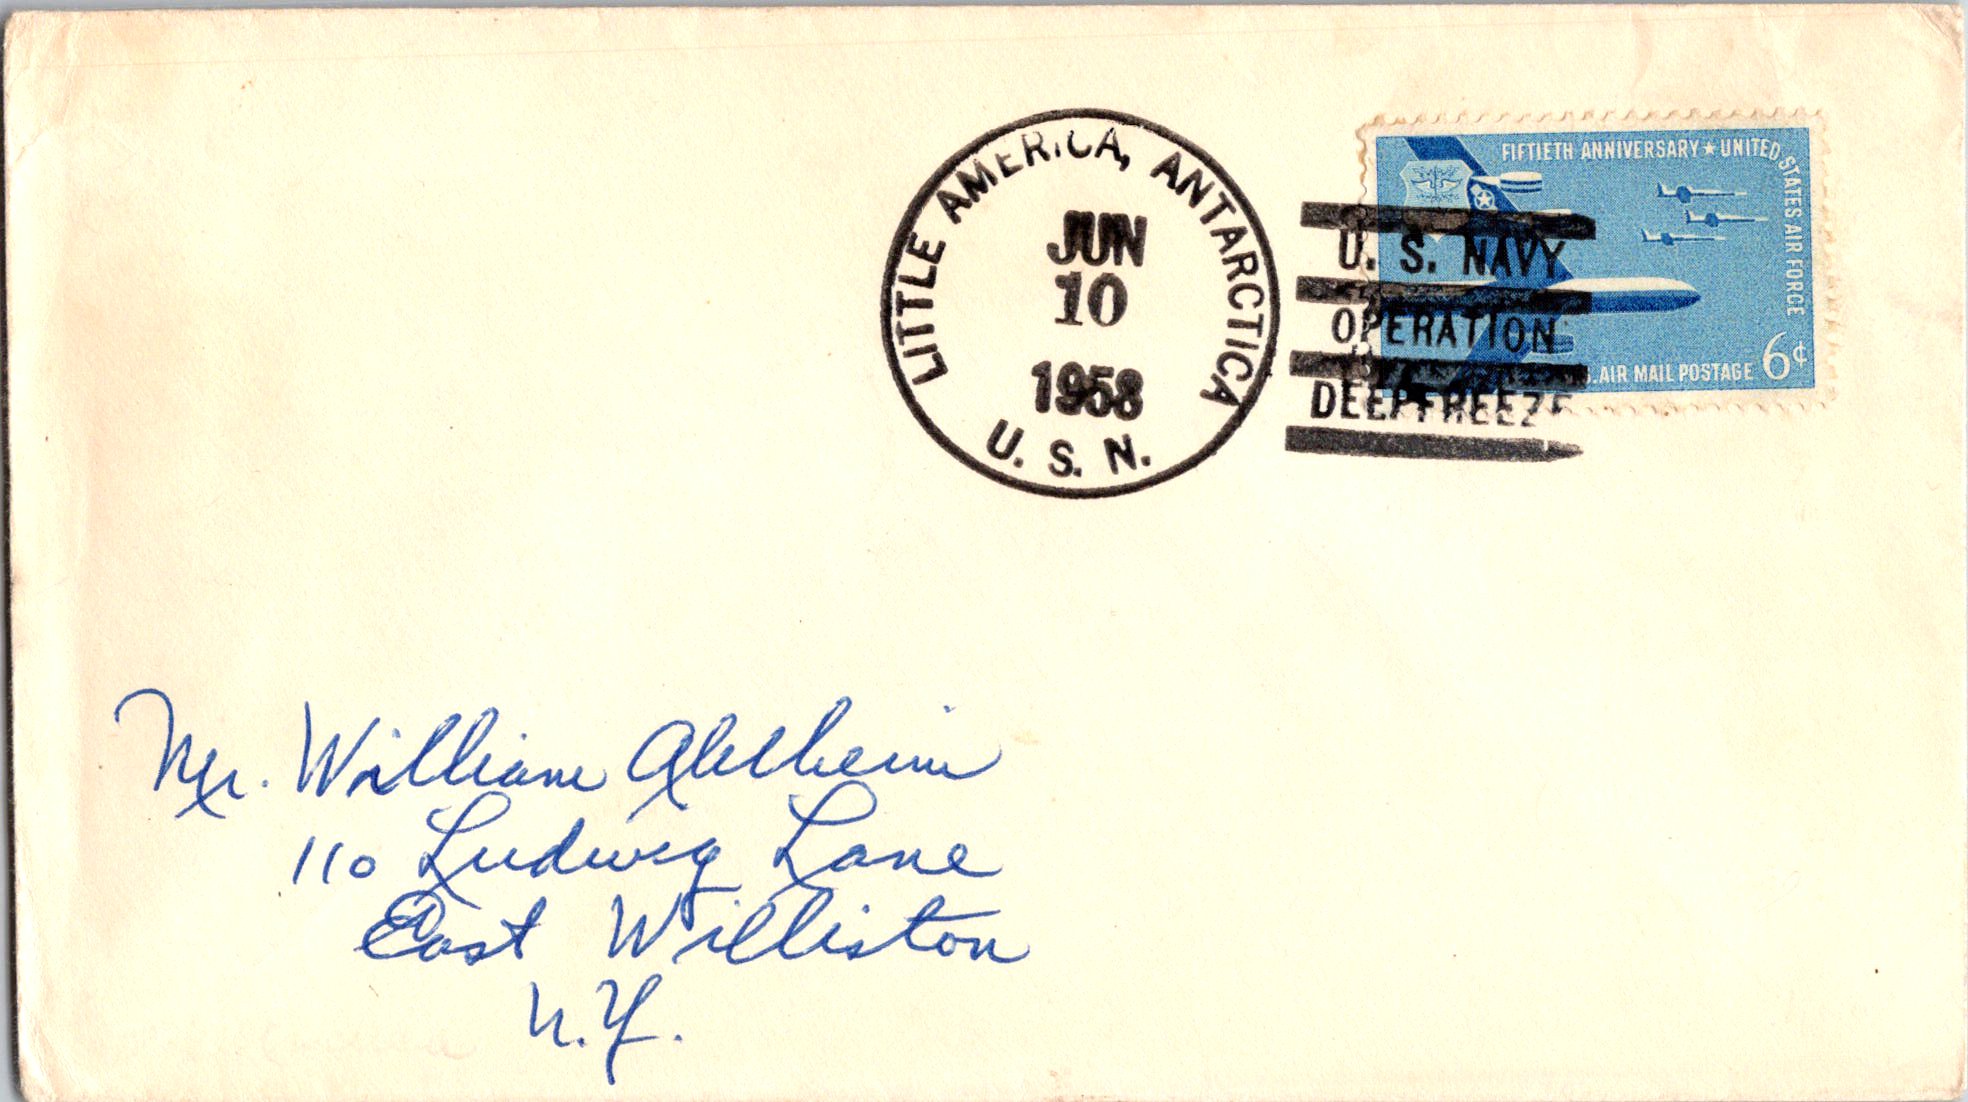 LITTLE AMERICA, ANTARCTICA
JUN
10
1958
U. S. N.
U. S. NAVY
OPERATION
DEEPFREEZE
FIFTIETH ANNIVERSARY ★ UNITED STATES AIR FORCE
AIR MAIL POSTAGE 6¢
Mr. William
110 Ludwig Lane
East Williston
N.Y.